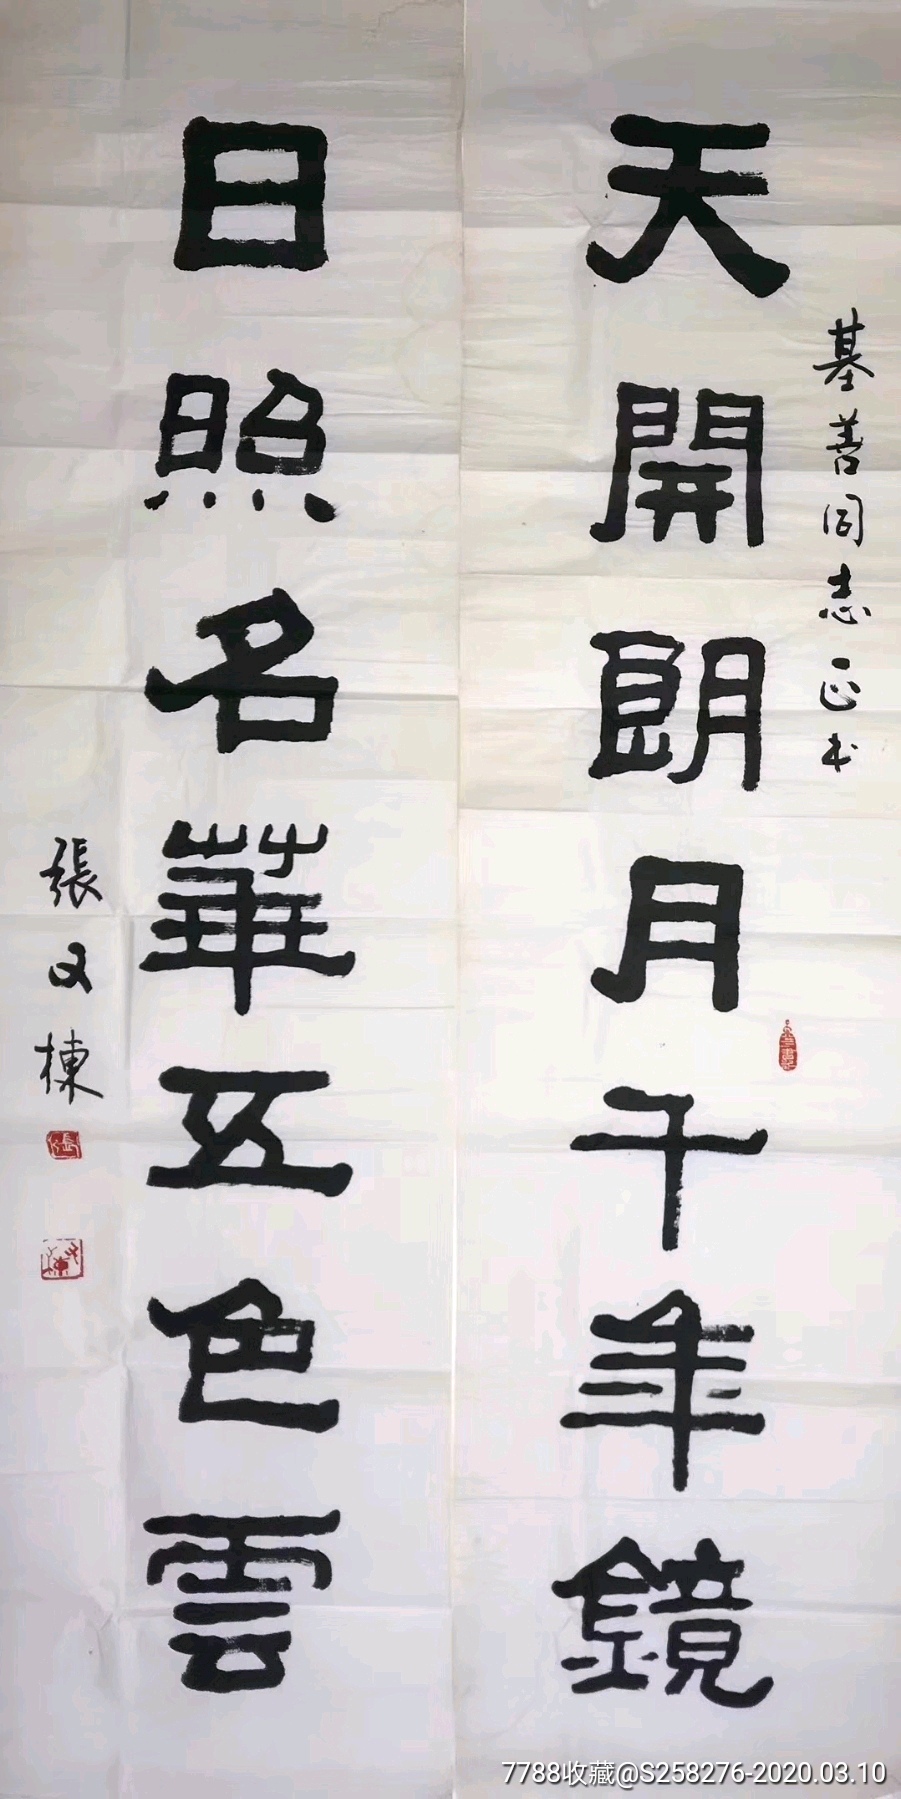 天開朗月千年鏡
基善同志正书
日照名華五色雲
張文棟
7788收藏@S258276-2020.03.10